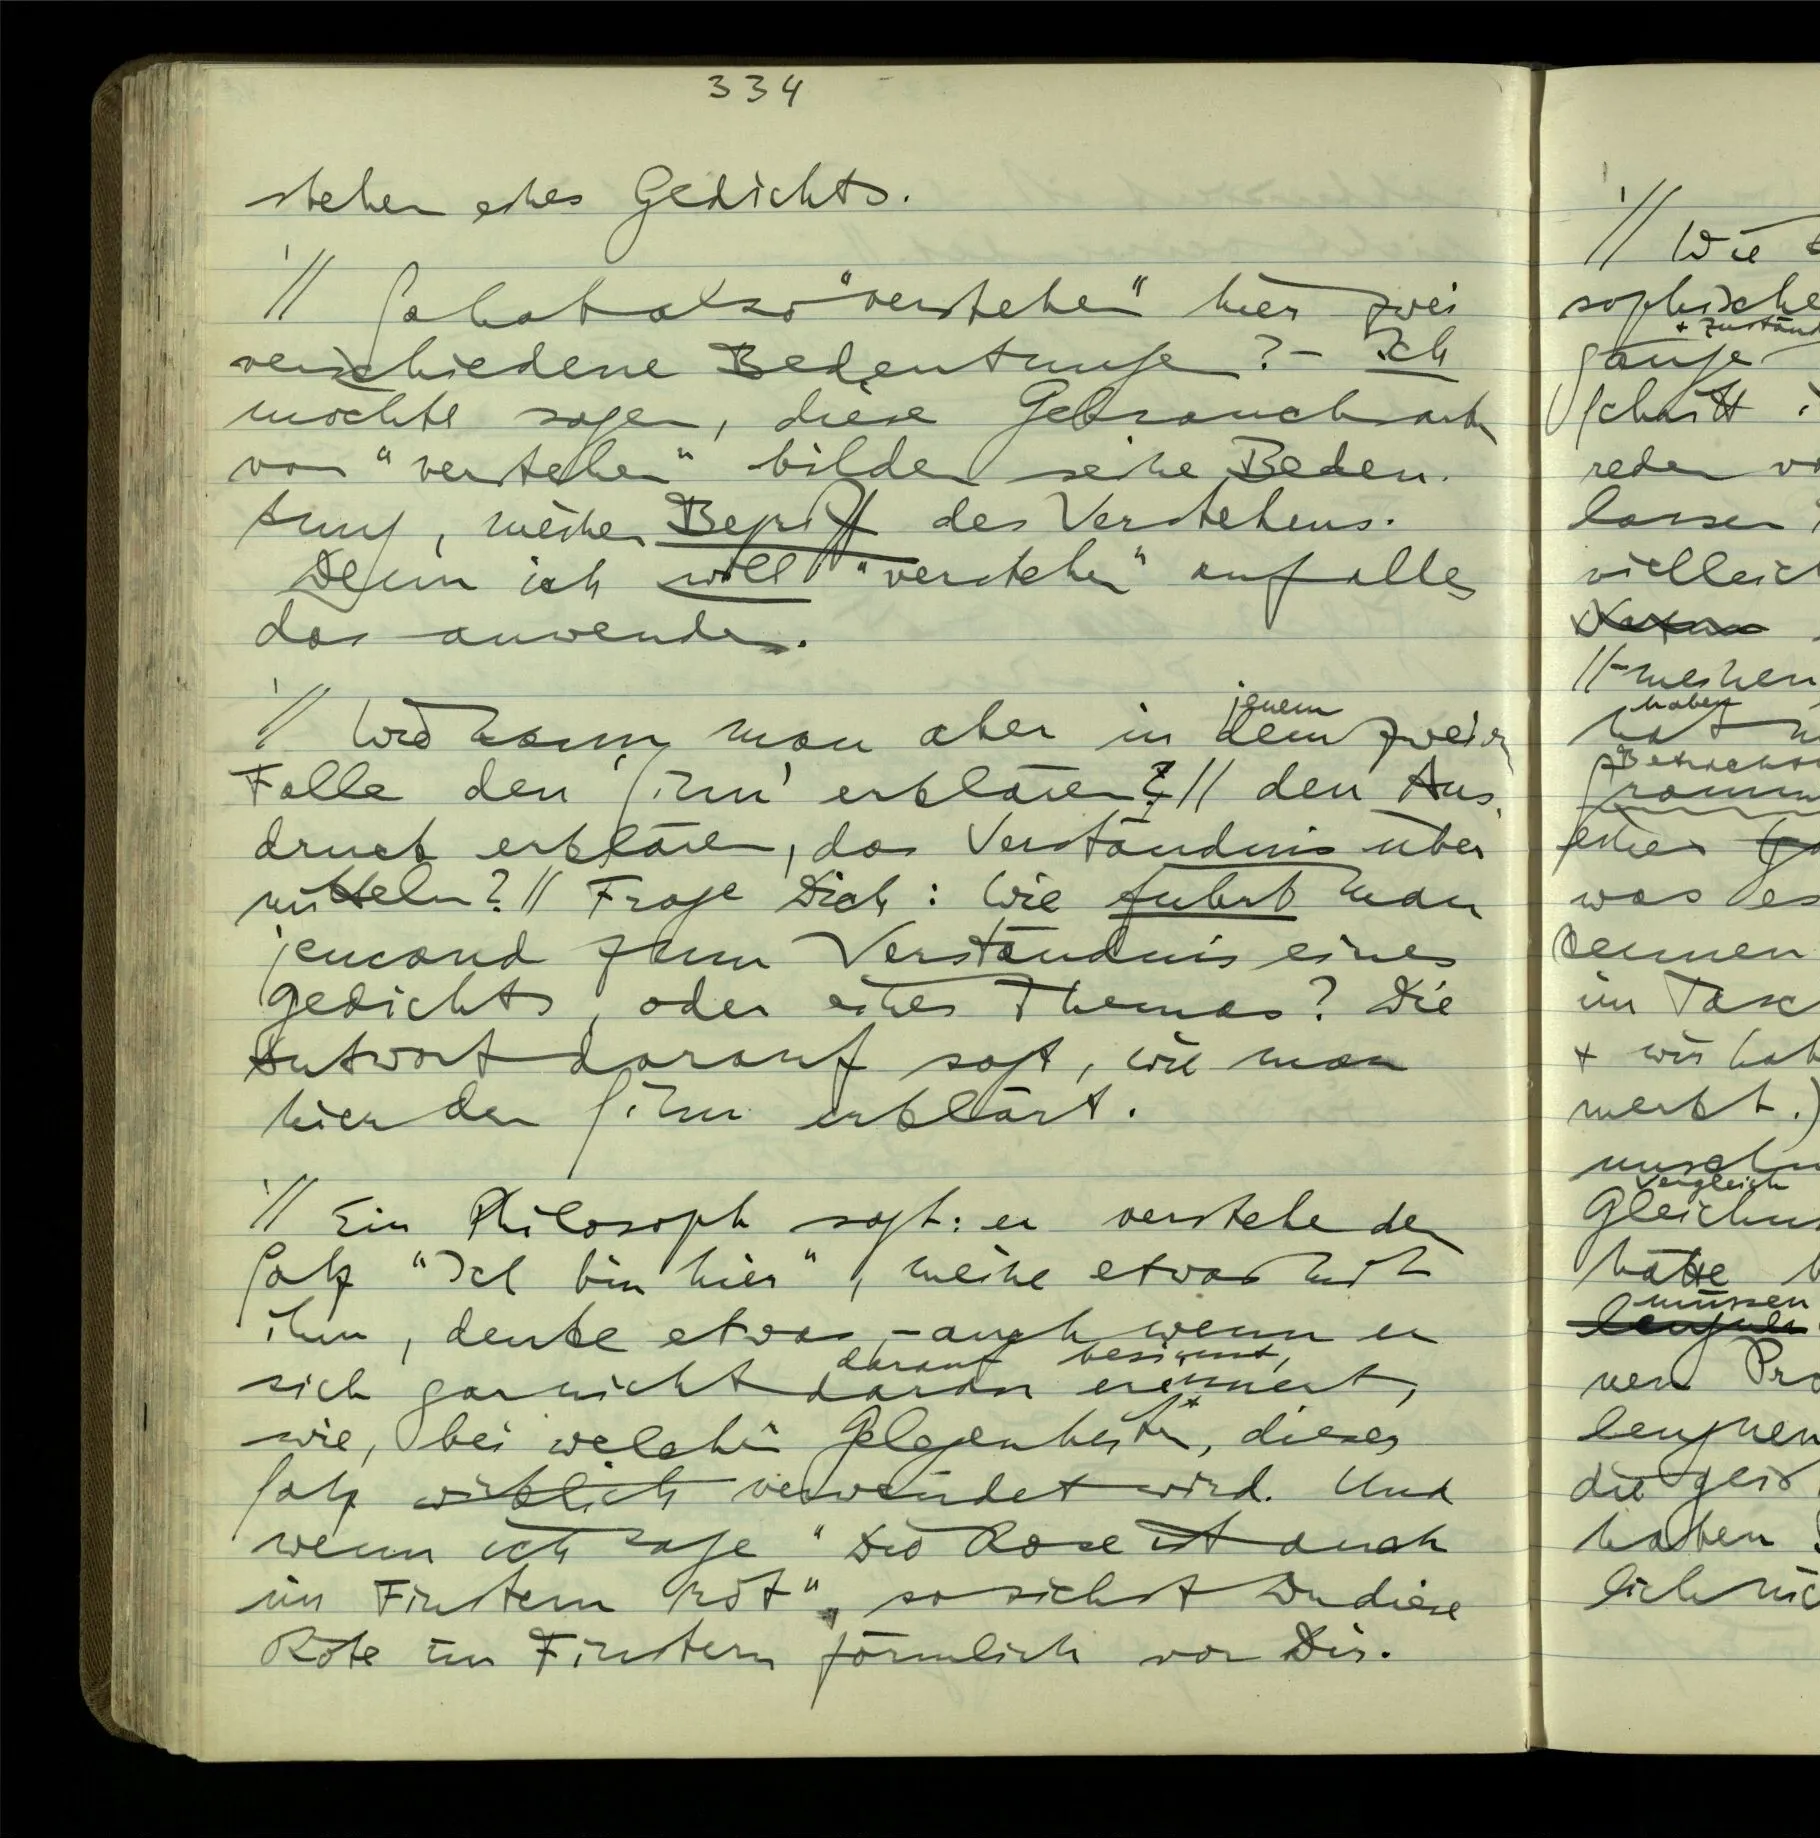 334
stehen eines Gedichts.
'// So hat also "verstehen" hier zwei
verschiedene Bedeutungen? – Ich
möchte sagen, diese Gebrauchsarten
von "verstehen" bilden seine Bedeu-
tung, meinen Begriff des Verstehens.
Denn ich will "verstehen" auf alles
das anwenden.
'// Wie kann man aber in jenem dem zweiten
Falle den 'Sinn' erklären? // den Aus-
druck erklären, das Verständnis über
mitteln? // Frage Dich: Wie führt man
jemand zum Verständnis eines
Gedichts, oder eines Themas? Die
Antwort darauf sagt, wie man
hier den Sinn erklärt.
'// Ein Philosoph sagt: er verstehe den
Satz "Ich bin hier", meine etwas mit
ihm, denke etwas, – auch wenn er
darauf besinnt,
sich gar nicht daran erinnert,
wie, bei welchen Gelegenheiten, dieser
Satz wirklich verwendet wird. Und
wenn ich sage "Die Rose ist auch
im Finstern rot", so siehst Du diese
Röte im Finstern förmlich vor Dir.
'// Wie
sophische
+ Zuständ
gänge
Schritt
reden
lassen
vielleich
//–meinen
haben
hat
was es
kennen
im Tasc
+ wir hab
merkt.)
Vergleich
Gleichn
hätte
müssen
leugnen
nen Pro
leugnen
die geis
haben
lich nic